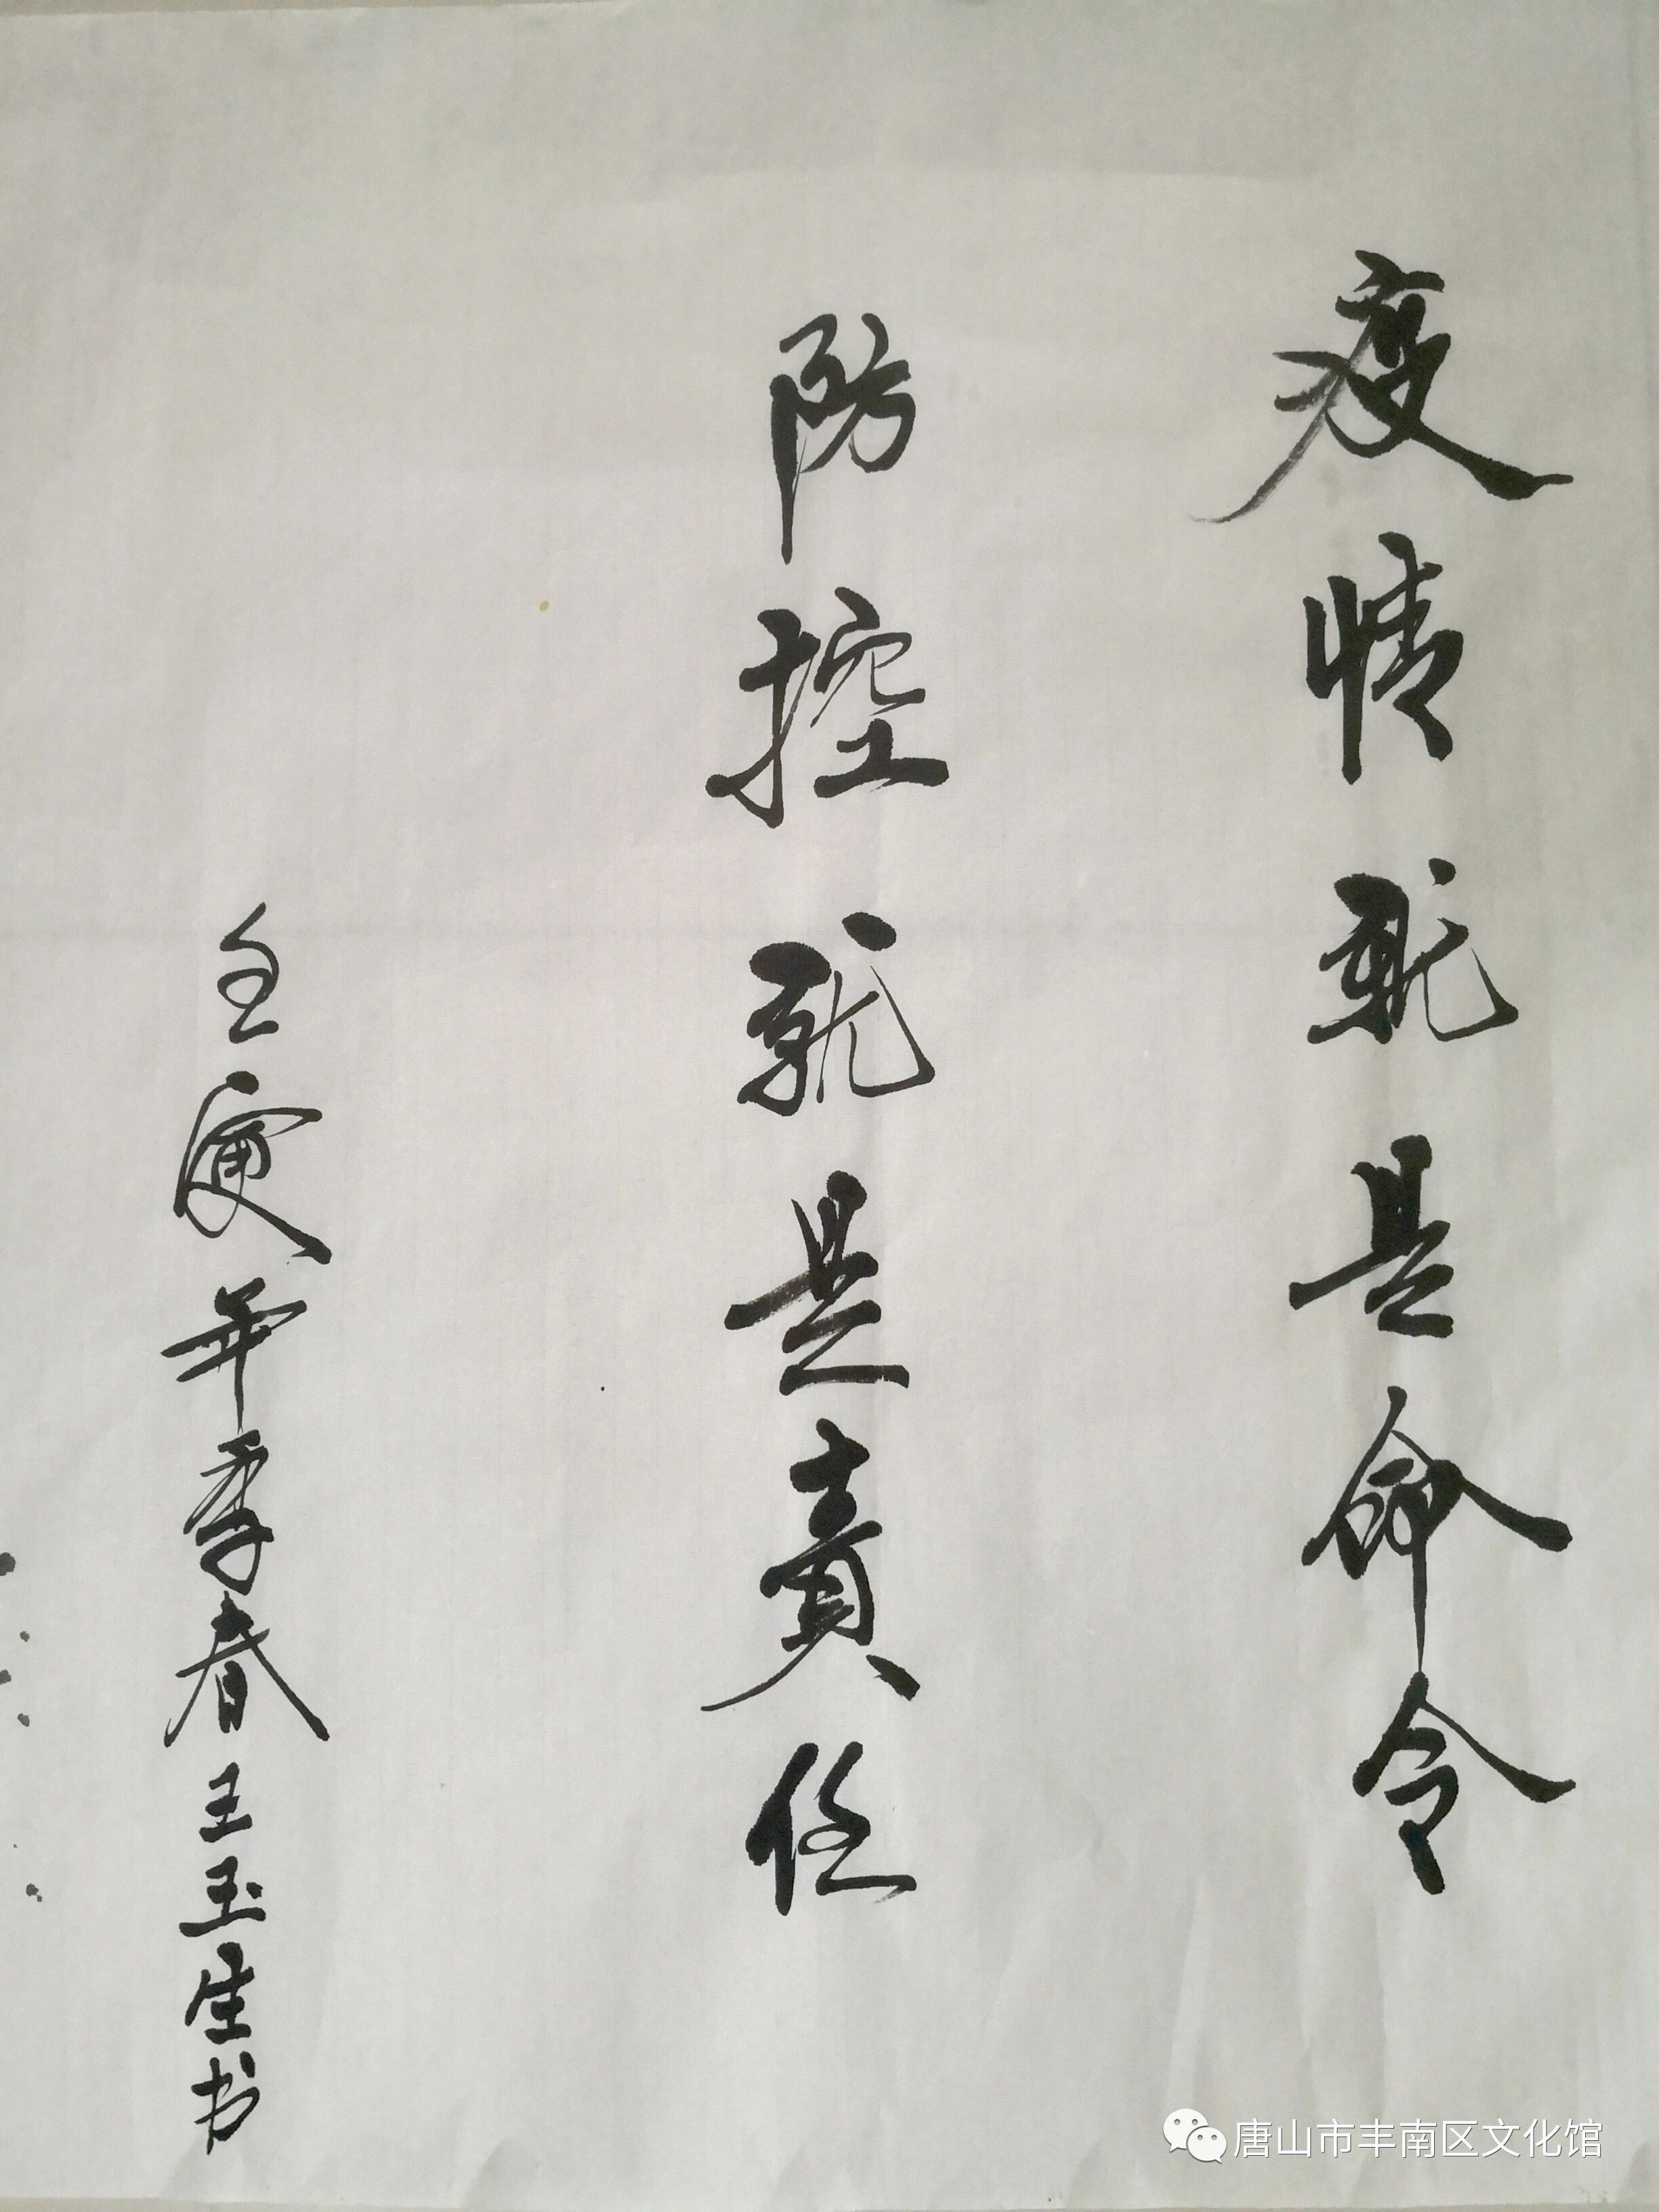 疫情就是命令
防控就是責任
壬寅年季春王玉生书
唐山市丰南区文化馆